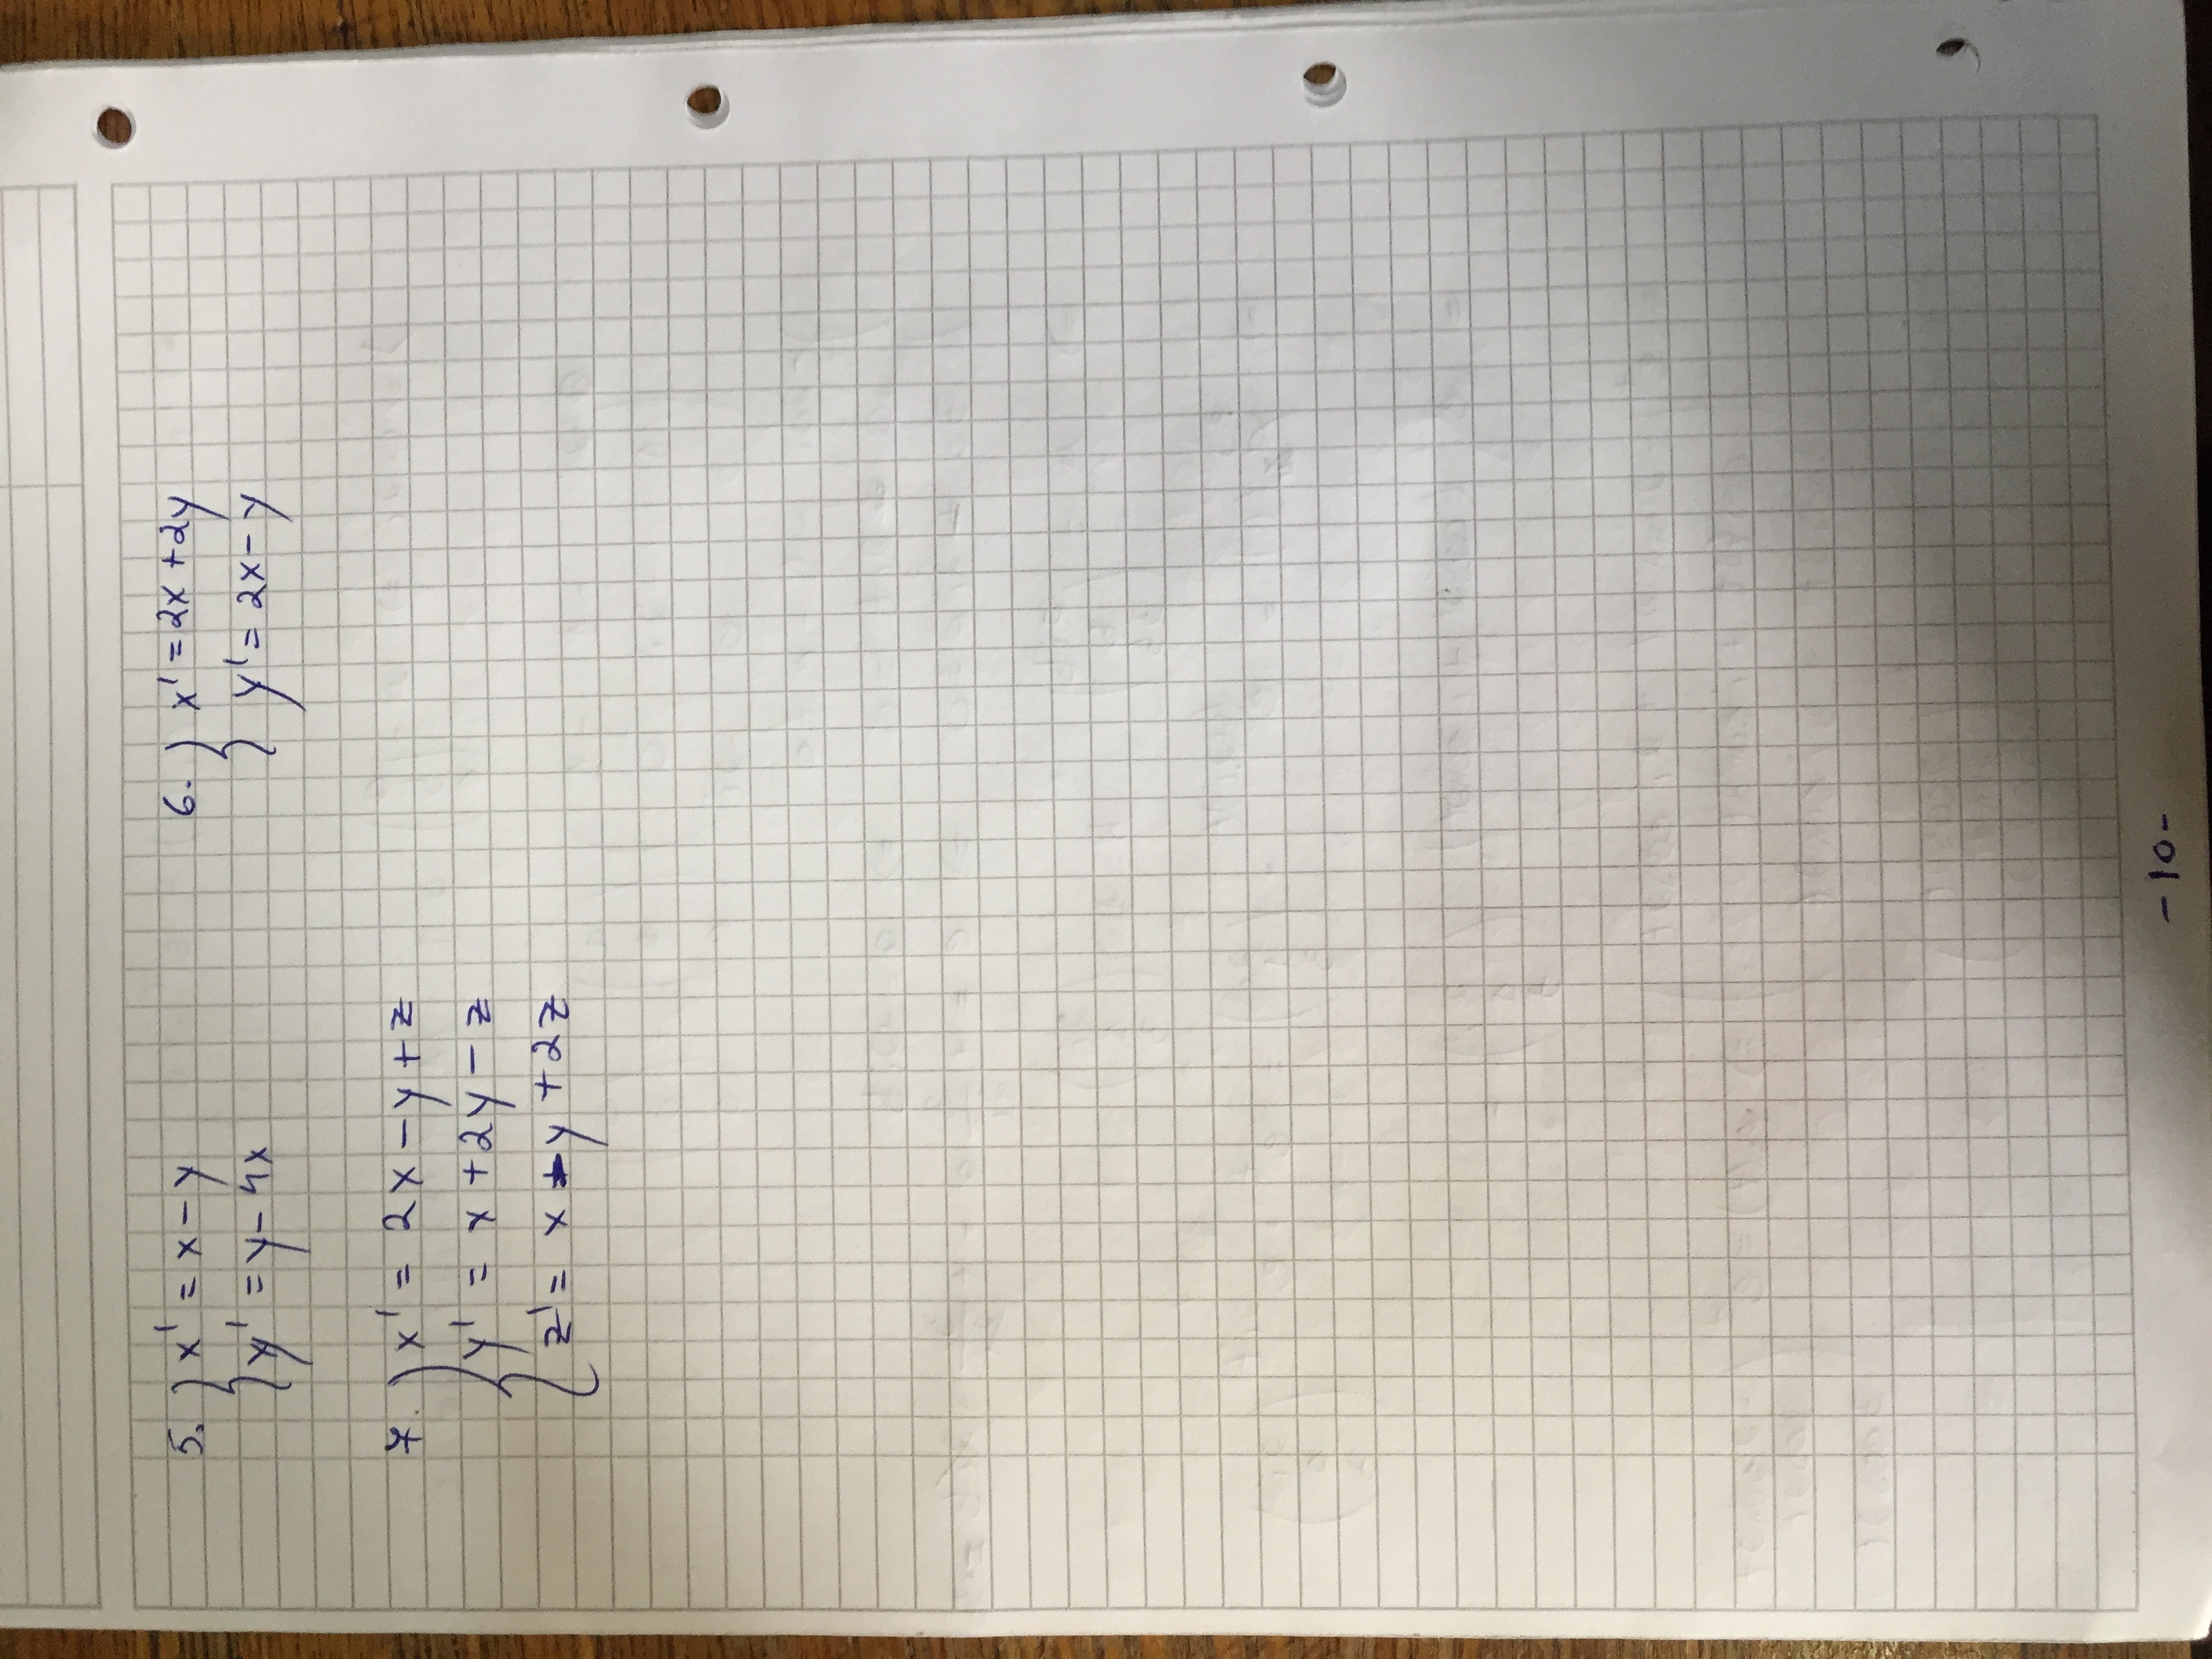 5. { x' = x - y
y' = y - 4x
6. { x' = 2x + 2y
y' = 2x - y
7. { x' = 2x - y + z
y' = x + 2y - z
z' = x - y + 2z
- 10 -